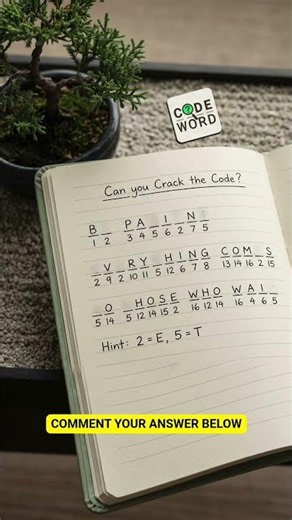 CODE
WORD
Can you Crack the Code?
B _ P A _ I _ N _
1 2 3 4 5 6 2 7 5
_ V _ R Y _ H I N G C O M _ S
2 9 2 10 11 5 12 6 7 8 13 14 16 2 15
_ O _ H O S E W H O W A I _ _
5 14 5 12 14 15 2 16 12 14 16 4 6 5
Hint: 2 = E, 5 = T
COMMENT YOUR ANSWER BELOW